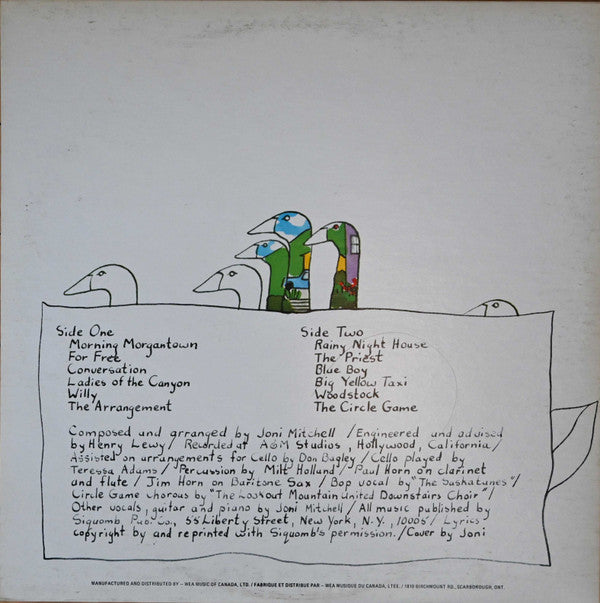 Side One
Morning Morgantown
For Free
Conversation
Ladies of the Canyon
Willy
The Arrangement
Side Two
Rainy Night House
The Priest
Blue Boy
Big Yellow Taxi
Woodstock
The Circle Game
Composed and arranged by Joni Mitchell / Engineered and advised
by Henry Lewy / Recorded at A&M Studios, Hollywood, California /
Assisted on arrangements for Cello by Don Bagley / Cello played by
Teressa Adams / Percussion by Milt Holland / Paul Horn on clarinet
and flute / Jim Horn on Baritone Sax / Bop vocal by "The Saskatunes" /
Circle Game chorous by "The Lookout Mountain United Downstairs Choir" /
Other vocals, guitar and piano by Joni Mitchell / All music published by
Siquomb, Pub. Co., 55 Liberty Street, New York, N.Y., 10005 / Lyrics
copyright by and reprinted with Siquomb's permission. / Cover by Joni
MANUFACTURED AND DISTRIBUTED BY – WEA MUSIC OF CANADA, LTD. / FABRIQUE ET DISTRIBUE PAR – WEA MUSIQUE DU CANADA, LTEE. / 1810 BIRCHMOUNT RD., SCARBOROUGH, ONT.